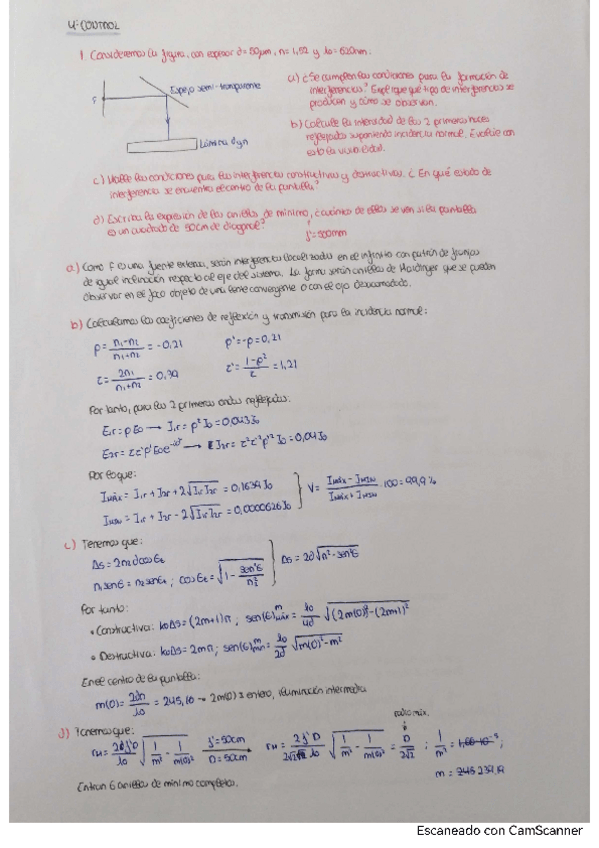 4º CONTROL
1. Consideremos la figura, con espesor d=50μm, n=1,52 y λo=620nm.
Espejo semi-transparente
F
Lámina d y n
a) ¿Se cumplen las condiciones para la formación de
interferencias? Explique qué tipo de interferencias se
producen y cómo se observan.
b) Calcule la intensidad de los 2 primeros haces
reflejados suponiendo incidencia normal. Evalúe con
esto la visibilidad.
c) Halle las condiciones para las interferencias constructivas y destructivas. ¿En qué estado de
interferencia se encuentra el centro de la pantalla?
d) Escriba la expresión de los anillos de mínimo, ¿cuántos de ellos se ven si la pantalla
es un cuadrado de 50cm de diagonal?
f'=500mm
a.) Como F es una fuente extensa, serán interferencias localizadas en el infinito con patrón de franjas
de igual inclinación respecto al eje del sistema. La forma serán anillos de Haidinger que se pueden
observar en el foco objeto de una lente convergente o con el ojo desacomodado.
b) Calculamos los coeficientes de reflexión y transmisión para la incidencia normal:
ρ = n1-n2 / n1+n2 = -0,21 ρ' = -ρ = 0,21
τ = 2n1 / n1+n2 = 0,79 τ' = 1-ρ² / τ = 1,21
Por tanto, para las 2 primeras ondas reflejadas:
E1r = ρE0 → I1r = ρ² I0 = 0,043 I0
E2r = ττ'ρ'E0e^-iδ → I2r = τ²τ'²ρ'² I0 = 0,04 I0
Por lo que:
Imáx = I1r + I2r + 2√I1r I2r = 0,1639 I0
Imin = I1r + I2r - 2√I1r I2r = 0,0000626 I0
V = Imáx - Imin / Imáx + Imin · 100 = 99,9%
c) Tenemos que:
Δs = 2n2dcosεt
n1 senε = n2 senεt ; cosεt = √1 - sen²ε / n2²
Δs = 2d√n² - sen²ε
Por tanto:
• Constructiva: koΔs = (2m+1)π ; sen(ε)m máx = λo / 4d √(2m(0))² - (2m+1)²
• Destructiva: koΔs = 2mπ ; sen(ε)m min = λo / 2d √m(0)² - m²
En el centro de la pantalla:
m(0) = 2dn / λo = 245,16 → 2m(0) ∄ entero, iluminación intermedia
d) Tenemos que:
radio máx.
f'=50cm
D=50cm
m = 245 239,19
Entran 6 anillos de mínimo completos.
Escaneado con CamScanner